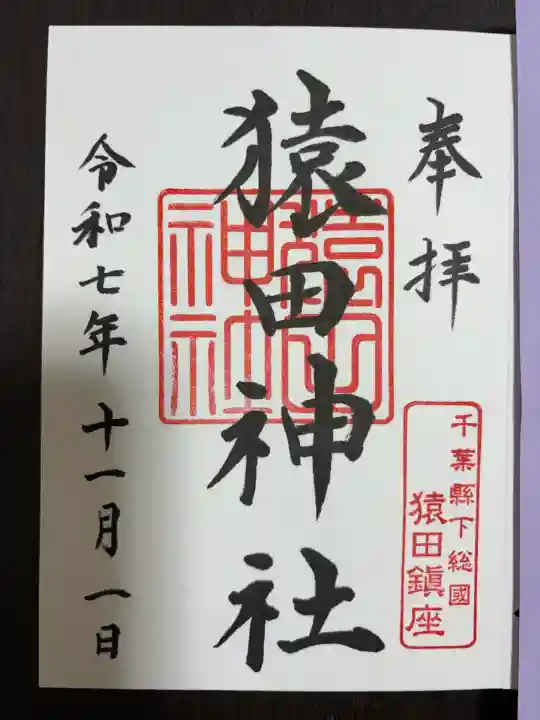 奉拝
千葉縣下総國
猿田鎮座
猿田神社
令和七年十一月一日